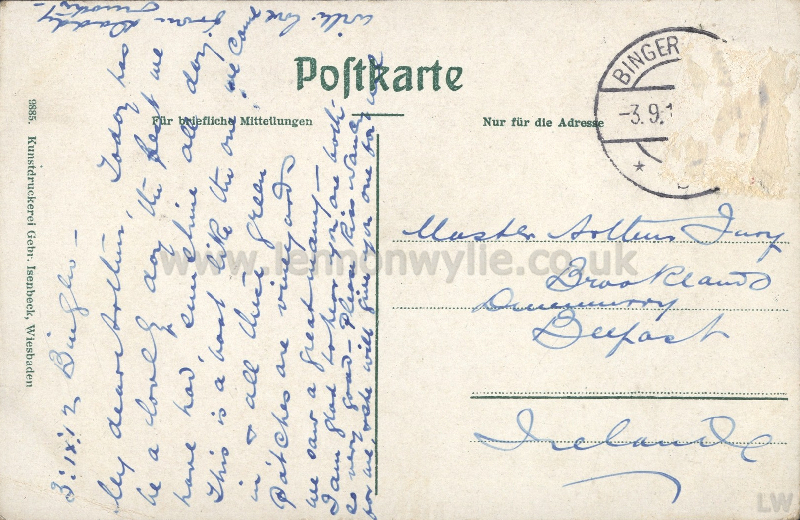 Postkarte
Für briefliche Mitteilungen
Nur für die Adresse
BINGER
-3.9.1
9885. Kunstdruckerei Gebr. Isenbeck, Wiesbaden
3.ix.12 Bingen -
My dear Arthur, Today has
be a lovely day the best we
have had, sunshine all day.
This is a boat like the one we came
in & all their green
Patches are vineyards
we saw a great many -
I am glad to hear you are both
so very good - Please kiss
for me, will give you one for me
with love
from Daddy
Master Arthur Jury
Brooklands
Dunmurry
Belfast
Ireland
www.lennonwylie.co.uk
LW